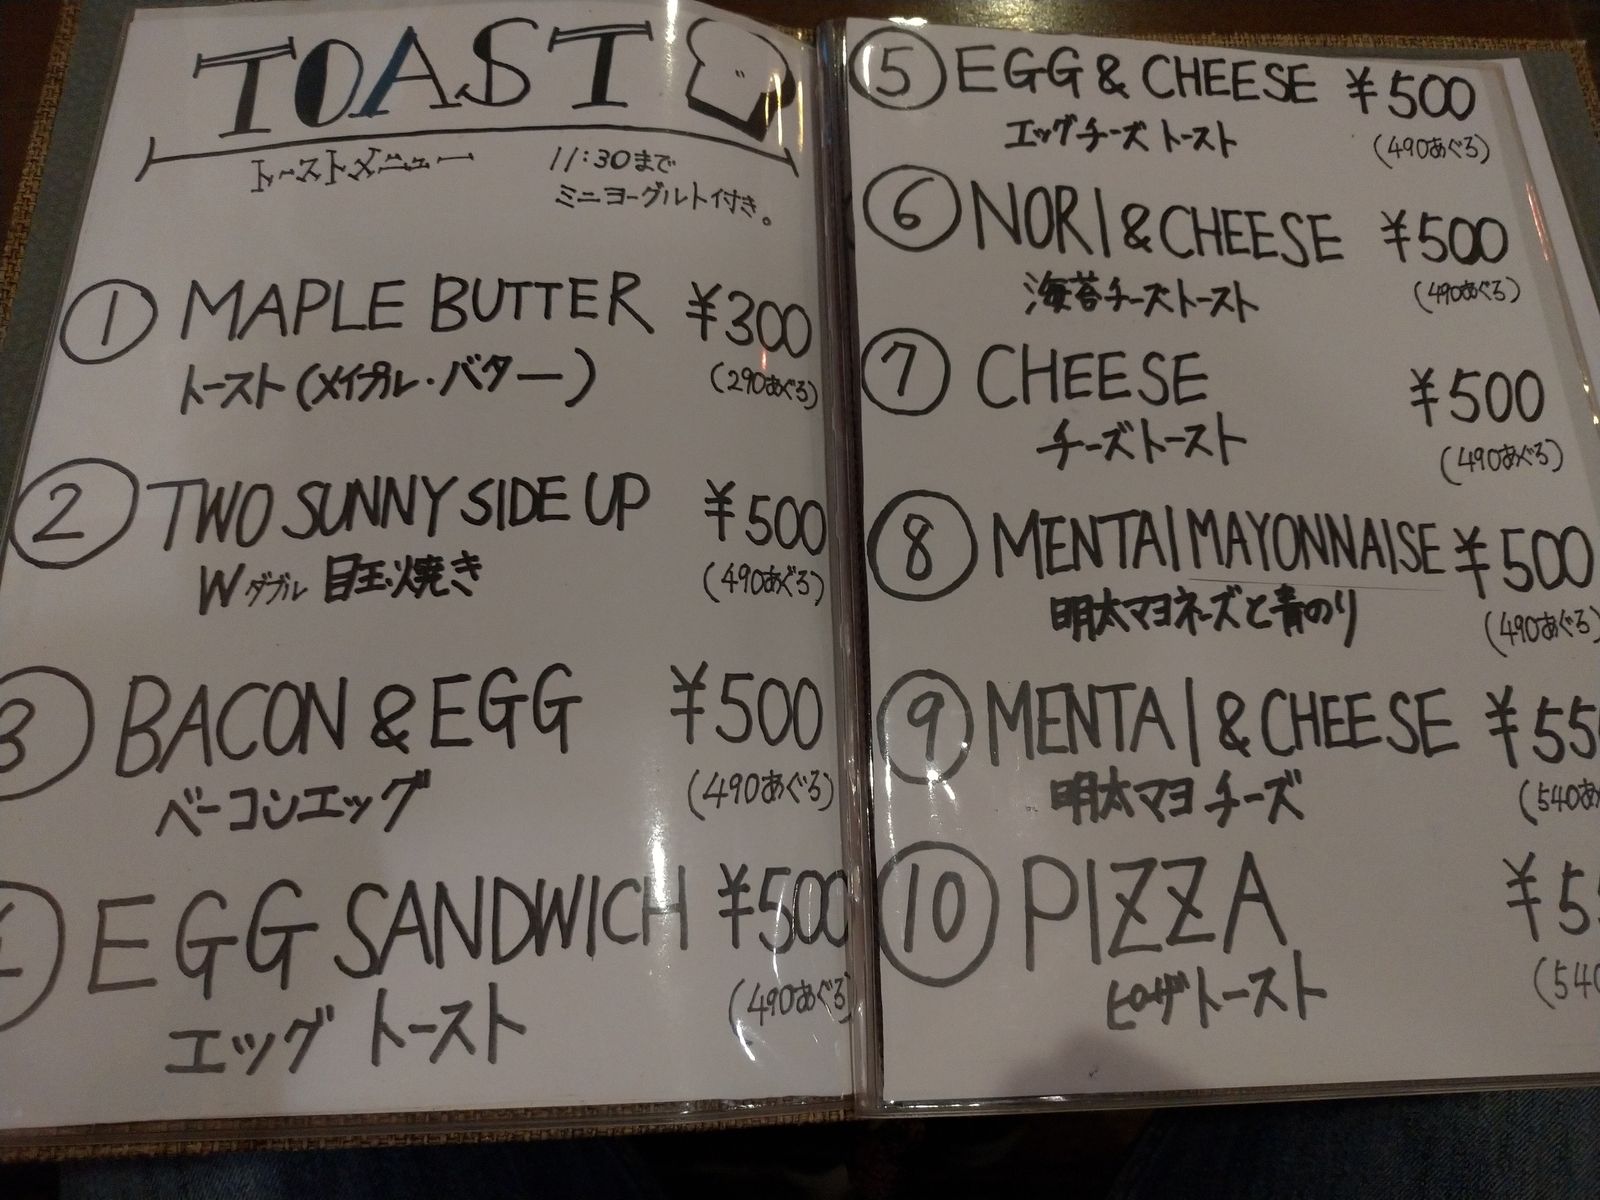 TOAST
トーストメニュー
11:30まで
ミニヨーグルト付き。
① MAPLE BUTTER ¥300
トースト(メイプル・バター) (290あぐろ)
② TWO SUNNY SIDE UP ¥500
Wダブル 目玉焼き (490あぐろ)
③ BACON & EGG ¥500
ベーコンエッグ (490あぐろ)
EGG SANDWICH ¥500
エッグトースト (490あぐろ)
⑤ EGG & CHEESE ¥500
エッグチーズトースト (490あぐろ)
⑥ NORI & CHEESE ¥500
海苔チーズトースト (490あぐろ)
⑦ CHEESE ¥500
チーズトースト (490あぐろ)
⑧ MENTAI MAYONNAISE ¥500
明太マヨネーズと青のり (490あぐろ)
⑨ MENTAI & CHEESE ¥55
明太マヨチーズ (540あ
⑩ PIZZA ¥5
ピザトースト (540